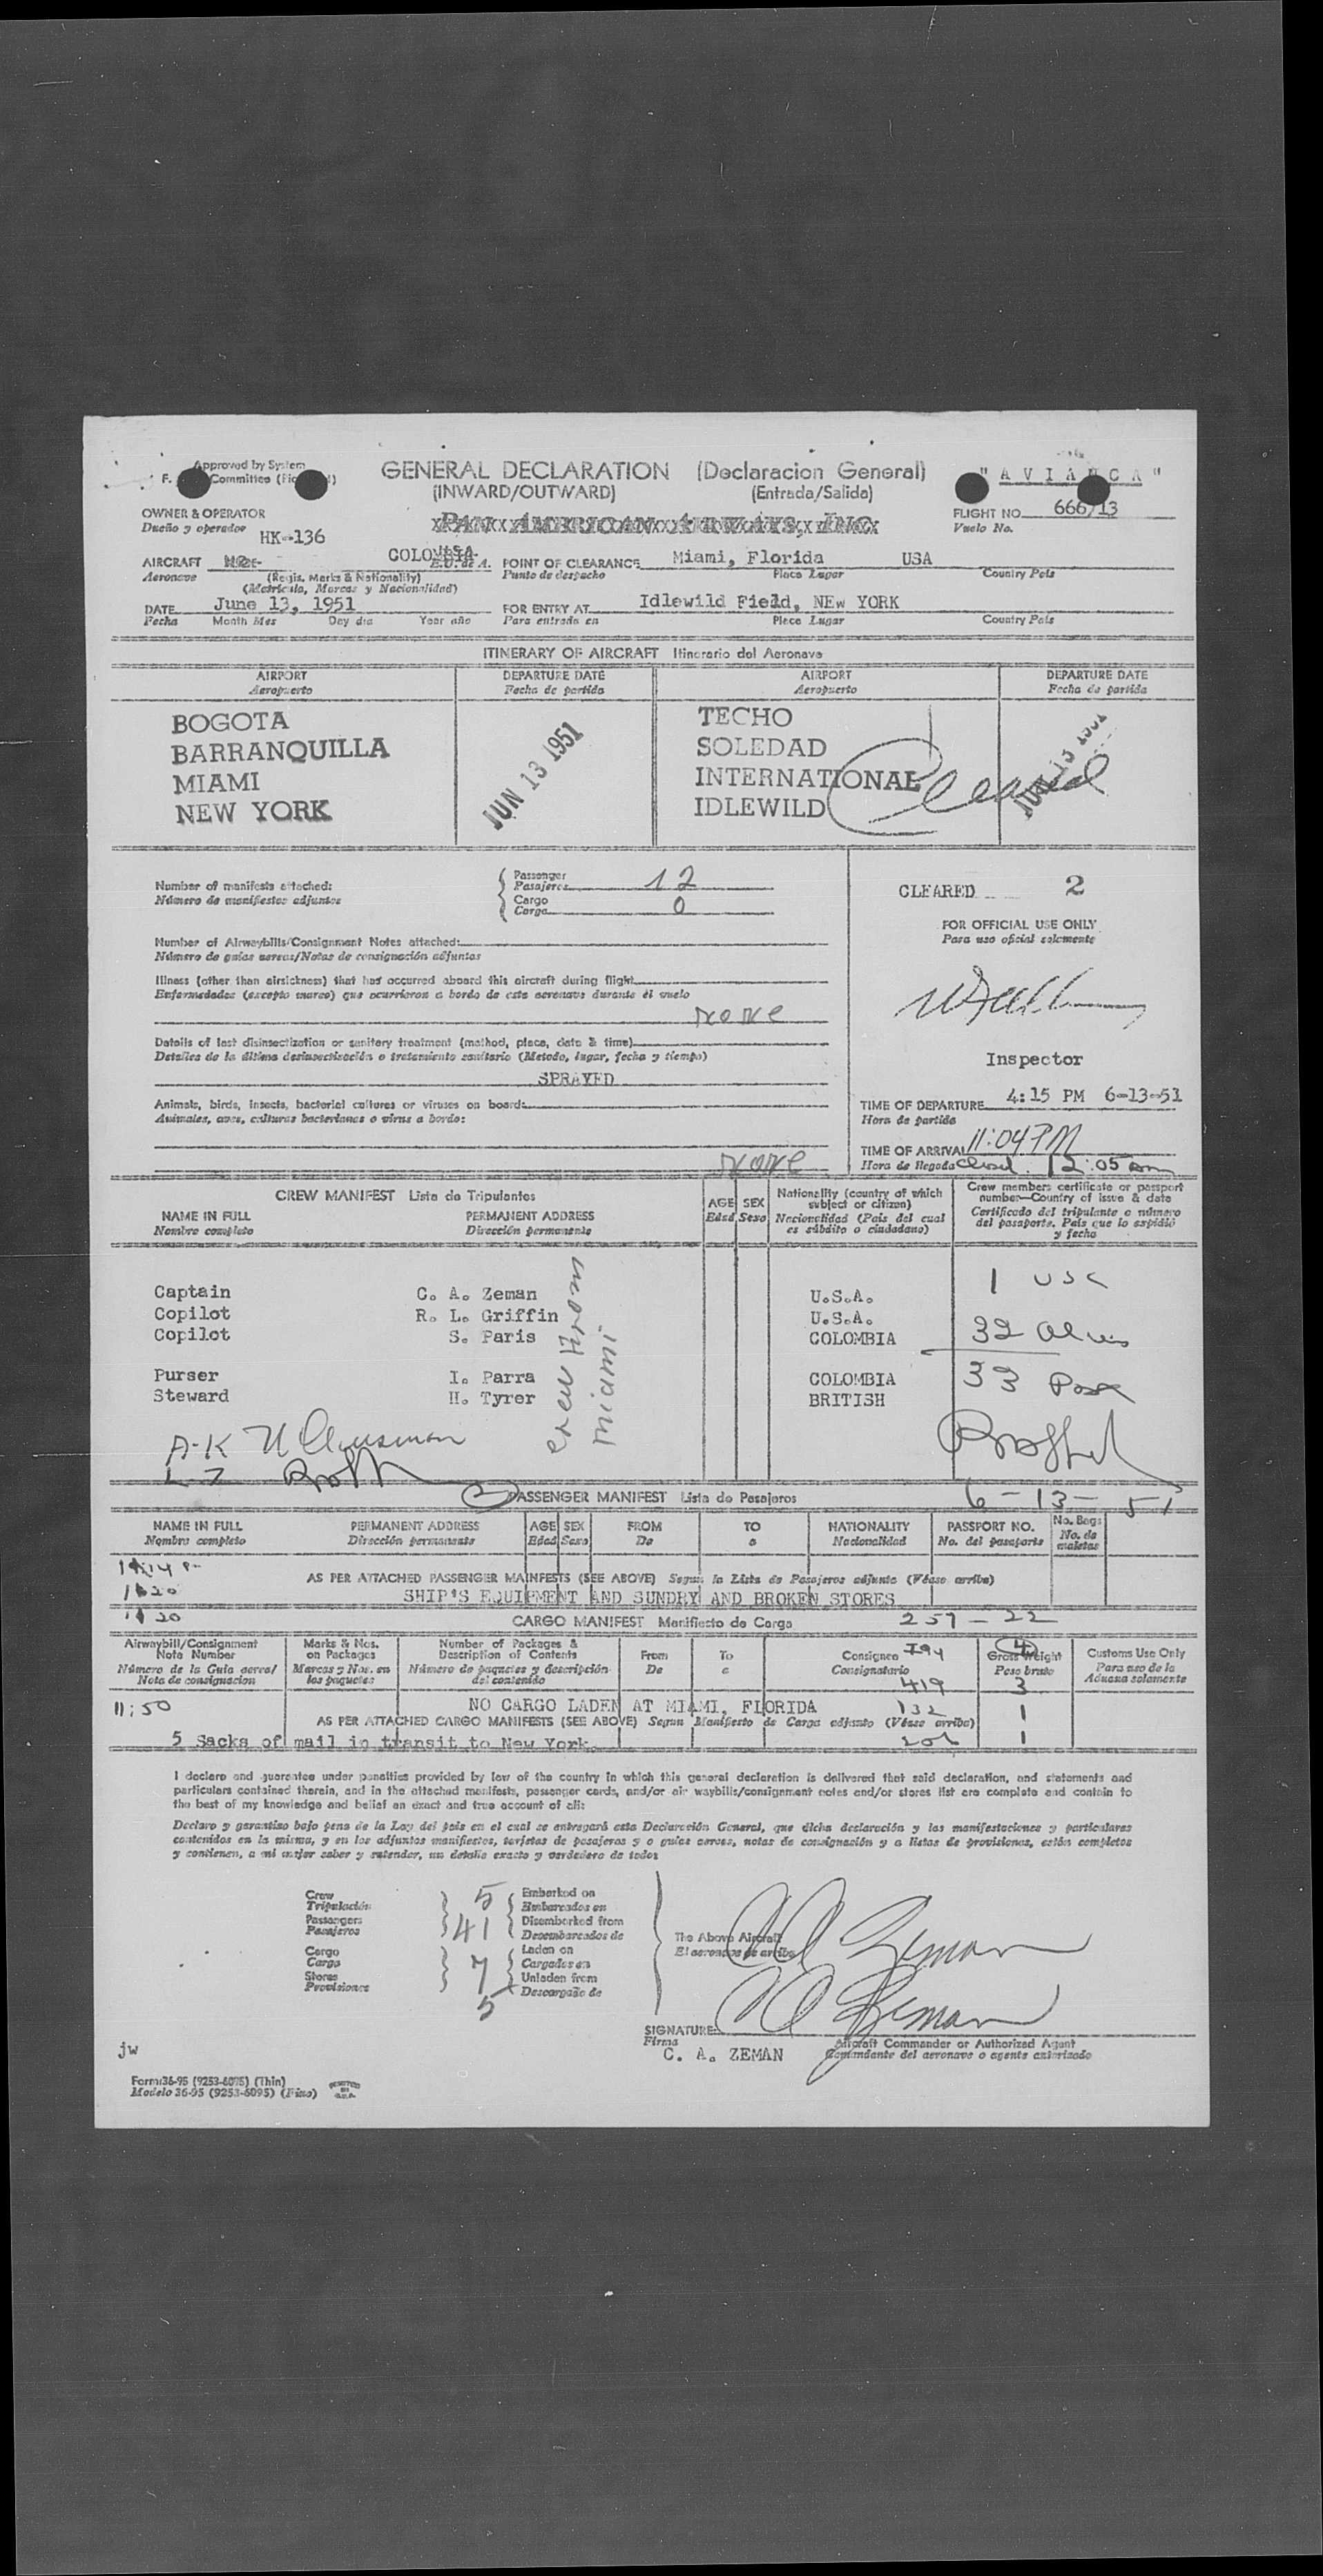 Approved by System
GENERAL DECLARATION (Declaracion General)
" A V I A N C A "
F. Committee
(INWARD/OUTWARD) (Entrada/Salida)
OWNER & OPERATOR
Dueño y operador
PAN AMERICAN AIRWAYS, INC.
FLIGHT NO. 666/13
Vuelo No.
HK-136
AIRCRAFT COLOMBIA
Aeronave (Regis. Marks & Nationality)
(Matrícula, Marcas y Nacionalidad)
POINT OF CLEARANCE Miami, Florida USA
Punto de despacho Place Lugar Country País
DATE June 13, 1951
Fecha Month Mes Day día Year año
FOR ENTRY AT Idlewild Field, NEw YORK
Para entrada en Place Lugar Country País
ITINERARY OF AIRCRAFT Itinerario del Aeronave
AIRPORT DEPARTURE DATE AIRPORT DEPARTURE DATE
Aeropuerto Fecha de partida Aeropuerto Fecha de partida
BOGOTA TECHO
BARRANQUILLA SOLEDAD
MIAMI INTERNATIONAL
NEW YORK IDLEWILD
JUN 13 1951
Cleared
JUN 13 1951
Number of manifests attached:
Número de manifiestos adjuntos
Passenger
Pasajeros 12
Cargo
Carga 0
CLEARED 2
FOR OFFICIAL USE ONLY
Para uso oficial solamente
Number of Airwaybills/Consignment Notes attached:
Número de guías aereas/Notas de consignación adjuntas
Illness (other than airsickness) that has occurred aboard this aircraft during flight
Enfermedades (excepto mareo) que ocurrieron a bordo de esta aeronave durante el vuelo
None
Details of last disinsectization or sanitary treatment (method, place, date & time)
Detalles de la última desinsectización o tratamiento sanitario (Metodo, lugar, fecha y tiempo)
SPRAYED
Inspector
Animals, birds, insects, bacterial cultures or viruses on board:
Animales, aves, culturas bacterianas o virus a bordo:
None
TIME OF DEPARTURE 4:15 PM 6-13-51
Hora de partida
TIME OF ARRIVAL 11:04 PM
Hora de llegada Clrd. 12:05 am
CREW MANIFEST Lista de Tripulantes
NAME IN FULL PERMANENT ADDRESS
Nombre completo Dirección permanente
AGE SEX
Edad Sexo
Nationality (country of which subject or citizen)
Nacionalidad (País del cual es súbdito o ciudadano)
Crew members certificate or passport number—Country of issue & date
Certificado del tripulante o número del pasaporte. País que lo expidió y fecha
Captain C. A. Zeman U.S.A.
Copilot R. L. Griffin U.S.A.
Copilot S. Paris COLOMBIA
Purser I. Parra COLOMBIA
Steward H. Tyrer BRITISH
Crew from
Miami
1 USC
32 Aliens
33 Pax
6-13-51
PASSENGER MANIFEST Lista de Pasajeros
NAME IN FULL PERMANENT ADDRESS AGE SEX FROM TO NATIONALITY PASSPORT NO. No. Bags
Nombre completo Dirección permanente Edad Sexo De a Nacionalidad No. del pasaporte No. de maletas
AS PER ATTACHED PASSENGER MAINFESTS (SEE ABOVE) Segun la Lista de Pasajeros adjunta (Véase arriba)
SHIP'S EQUIPMENT AND SUNDRY AND BROKEN STORES
CARGO MANIFEST Manifiesto de Carga
257 - 22
Airwaybill/Consignment Note Number
Número de la Guía aerea/ Nota de consignacion
Marks & Nos. on Packages
Marcas y Nos. en los paquetes
Number of Packages & Description of Contents
Número de paquetes y descripción del contenido
From
De
To
a
Consignee
Consignatario
Gross Weight
Peso bruto
Customs Use Only
Para uso de la Aduana solamente
794 4
419 3
11:50 NO CARGO LADEN AT MIAMI, FLORIDA 132 1
AS PER ATTACHED CARGO MANIFESTS (SEE ABOVE) Segun Manifiesto de Carga adjunto (Véase arriba)
5 Sacks of mail in transit to New York 206 1
I declare and guarantee under penalties provided by law of the country in which this general declaration is delivered that said declaration, and statements and
particulars contained therein, and in the attached manifests, passenger cards, and/or air waybills/consignment notes and/or stores list are complete and contain to
the best of my knowledge and belief an exact and true account of all:
Declaro y garantizo bajo pena de la Ley del país en el cual se entregará esta Declarción General, que dicha declaración y las manifestaciones y particulares
contenidos en la misma, y en los adjuntos manifiestos, tarjetas de pasajeros y o guías aereas, notas de consignación y a listas de provisiones, están completos
y contienen, a mi mejor saber y entender, un detalle exacto y verdadero de todos
Crew 5 Embarked on
Tripulación Embarcados en
Passengers 41 Disembarked from
Pasajeros Desembarcados de
Cargo 7 Laden on
Carga Cargados en
Stores Unladen from
Provisiones 5 Descargado de
The Above Aircraft
El aeronave de arriba
C A Zeman
C A Zeman
SIGNATURE
Firma
C. A. ZEMAN
Aircraft Commander or Authorized Agent
Comandante del aeronave o agente autorizado
jw
Form 36-95 (9253-6095) (Thin)
Modelo 36-95 (9253-6095) (Fino)
PRINTED IN U.S.A.